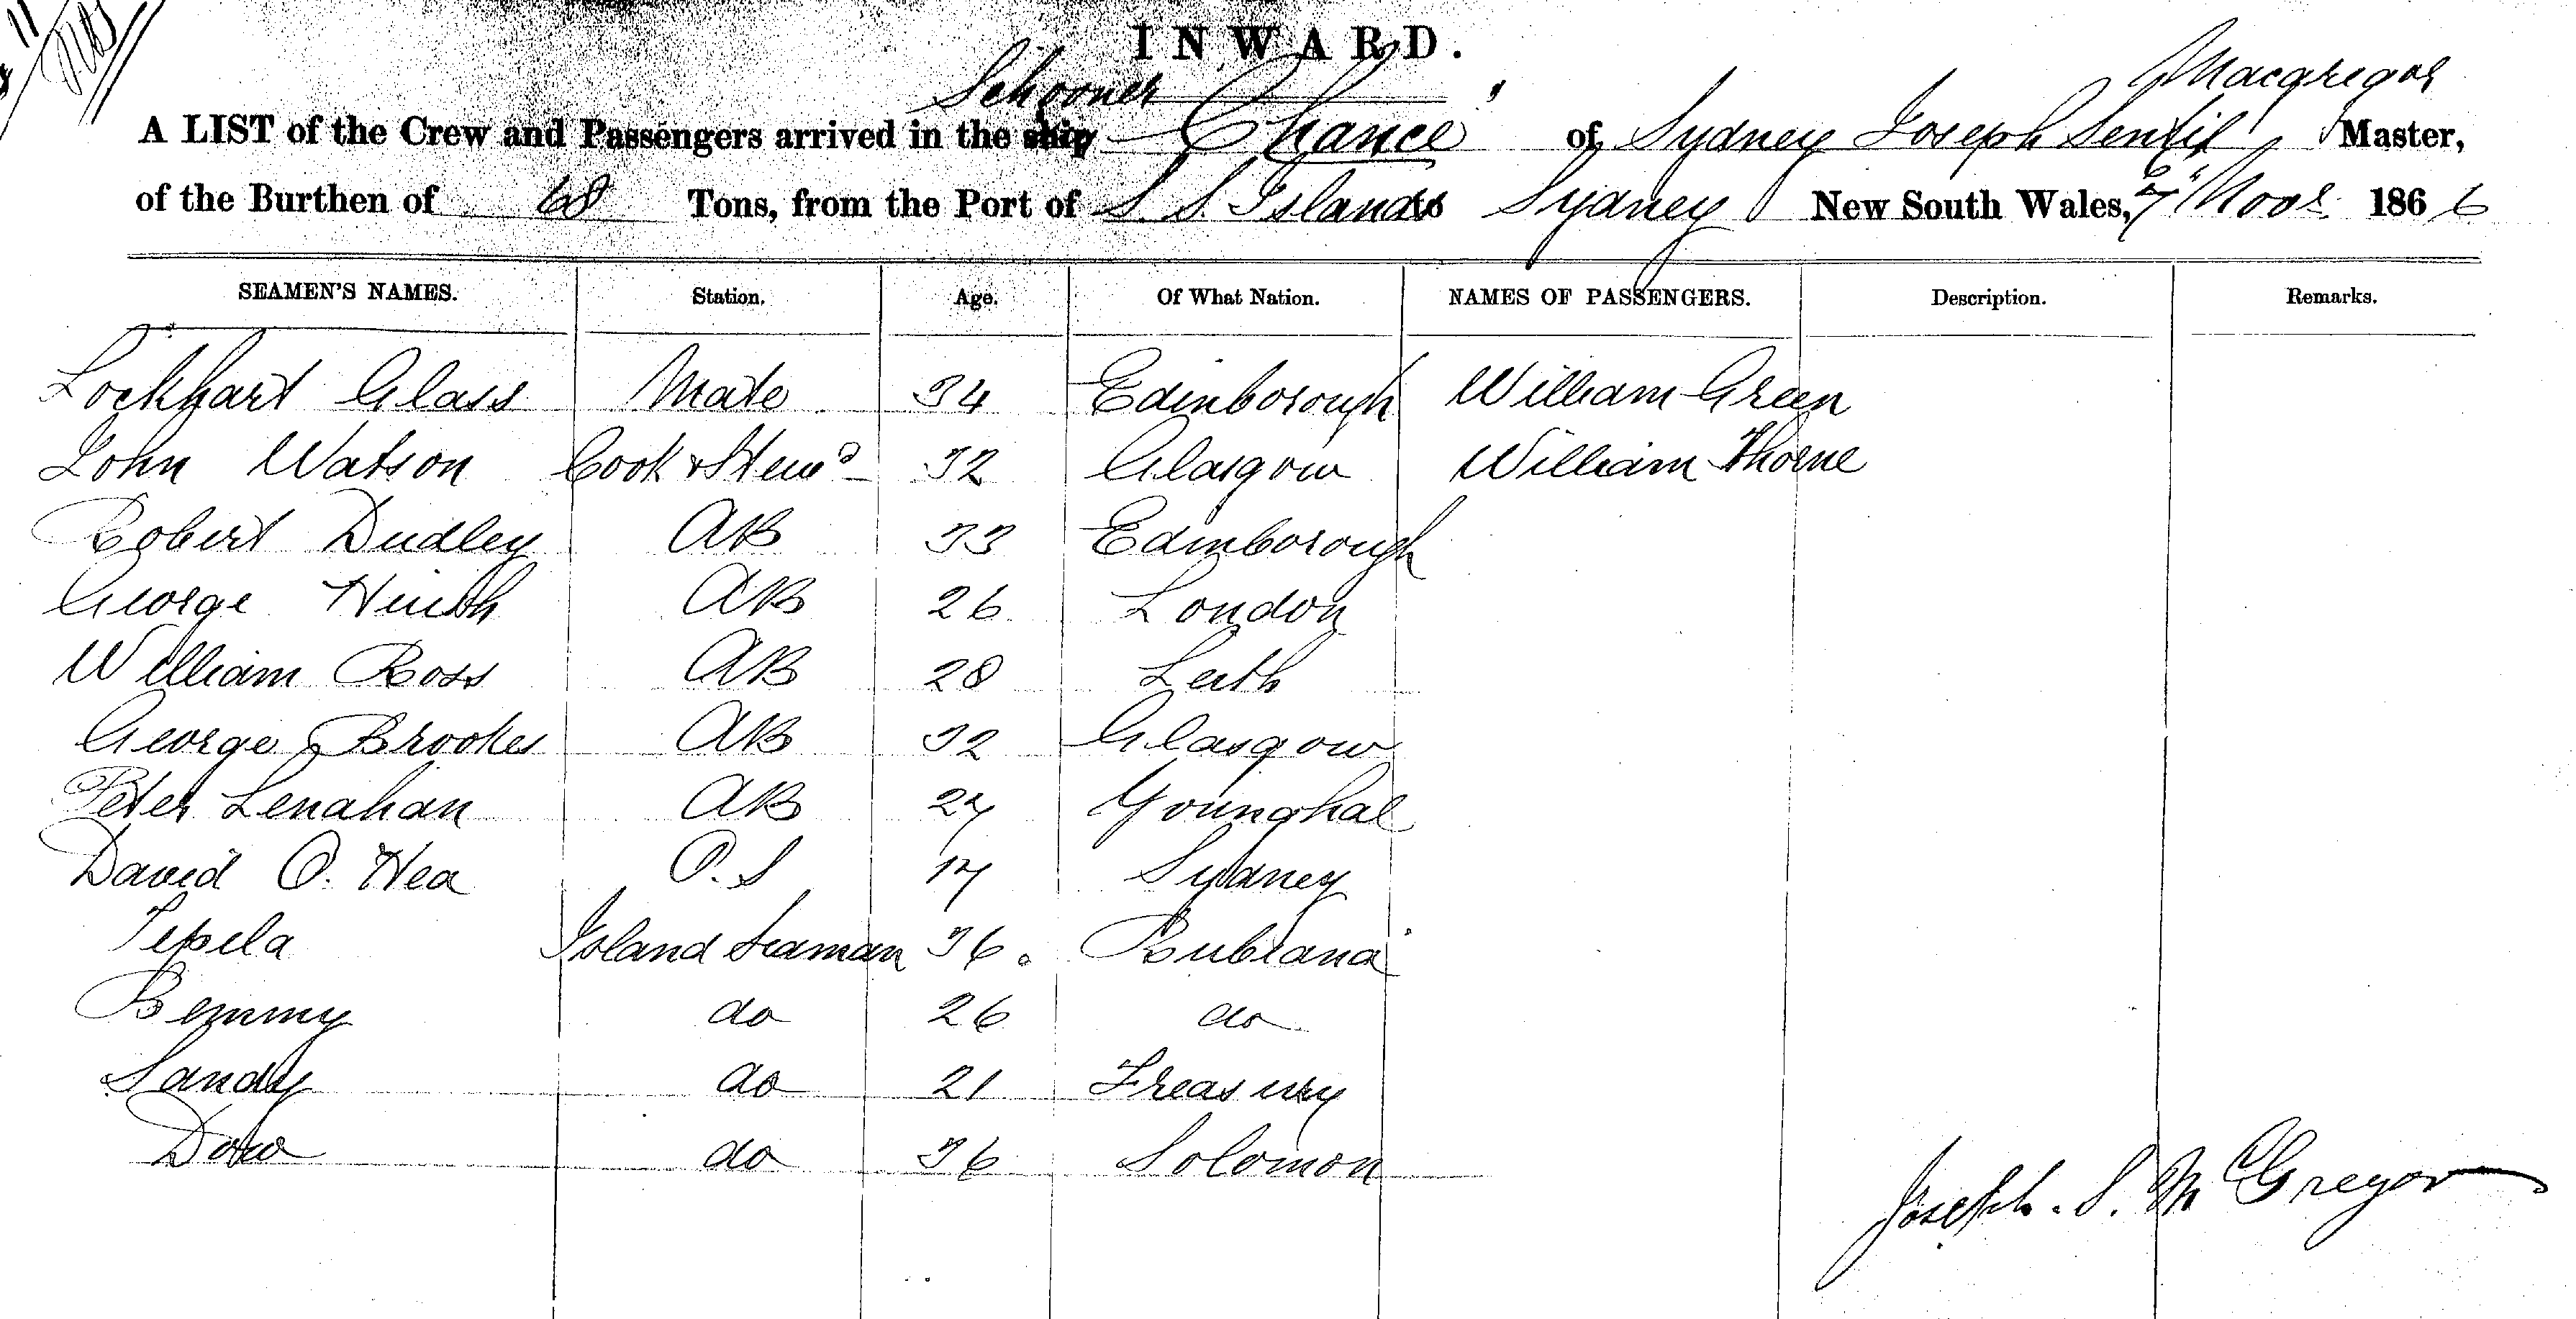 INWARD.
A LIST of the Crew and Passengers arrived in the ship Schooner Chance of Sydney Joseph Macgregor Master,
of the Burthen of 68 Tons, from the Port of S S Islands Sydney New South Wales, 7 Novr 1866
SEAMEN'S NAMES. Station. Age. Of What Nation. NAMES OF PASSENGERS. Description. Remarks.
Lockhart Glass Mate 34 Edinborough William Green
John Watson Cook & Stewd 32 Glasgow William Thorne
Robert Dudley AB 33 Edinborough
George AB 26 London
William Ross AB 28 Leith
George Brookes AB 32 Glasgow
Peter Lenahan AB 27 Younghal
David O. Hea O.S 17 Sydney
Island Seaman 36. Rubiana
Bemmy do 26 do
Sandy do 21 Treasury
do 36 Solomon
Joseph. S. McGregor